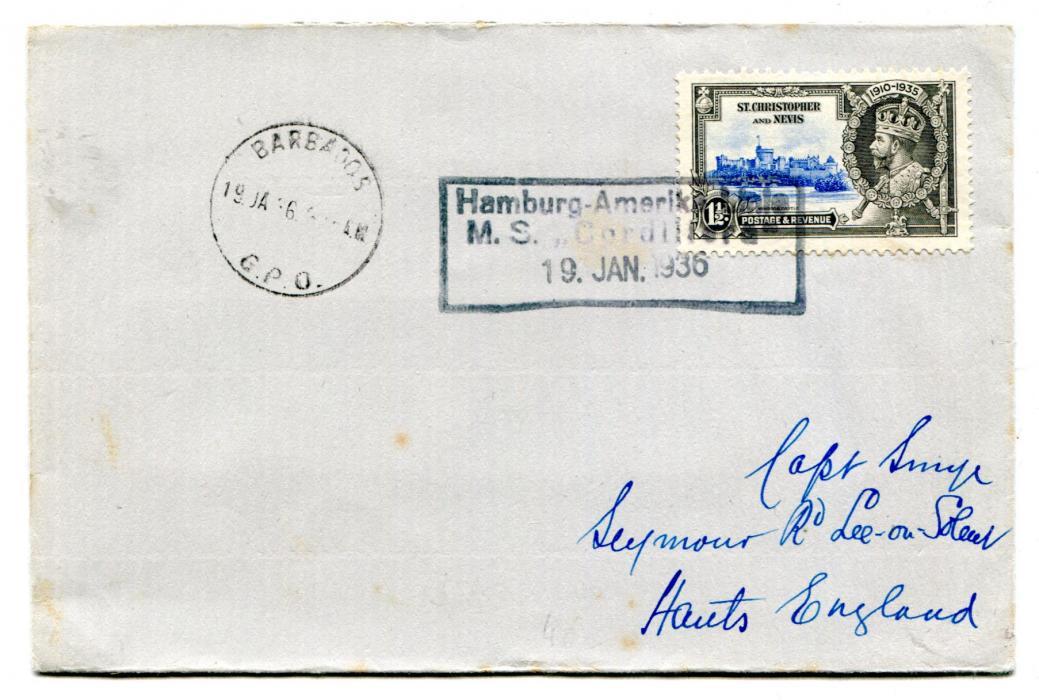 BARBADOS
19 JA 36 AM
G.P.O.
Hamburg-Amerika Linie
M. S. „Cordillera
19. JAN. 1936
1910-1935
ST. CHRISTOPHER
AND NEVIS
1½D.
POSTAGE & REVENUE
Capt
Seymour Rd Lee-on-Solent
Hants England